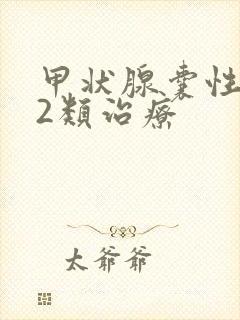 甲状腺囊性
2類治療
太爺爺